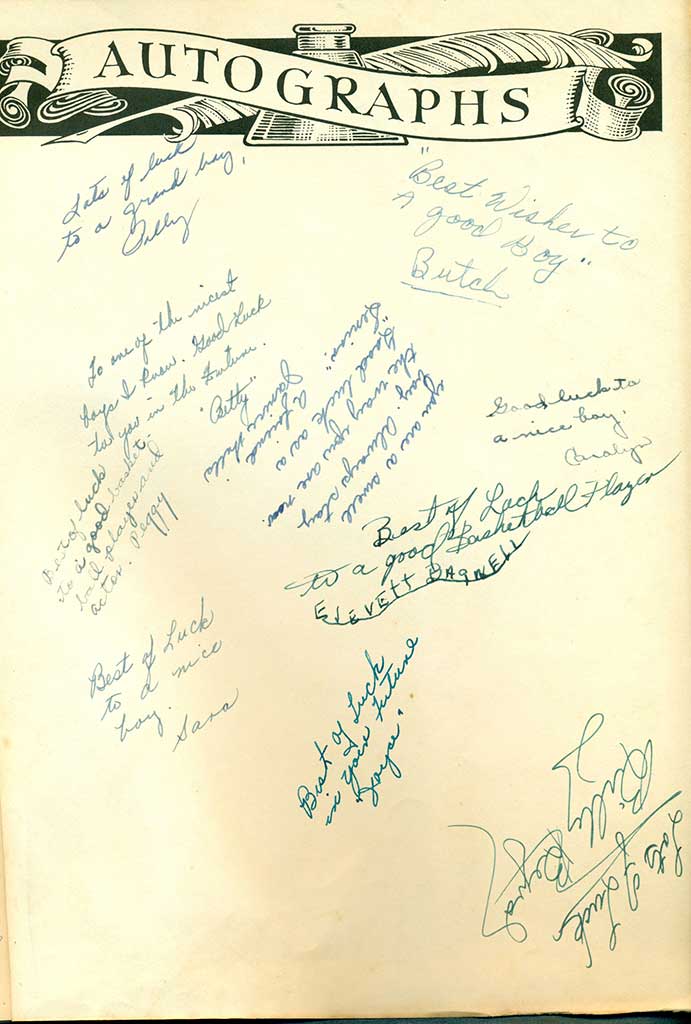 AUTOGRAPHS
Lots of luck
to a grand boy,
"Best Wishes to
A good Boy"
Butch
To one of the nicest
boys I know. Good Luck
to you in the Future.
"Betty"
You are a swell
boy. Always stay
the way you are now.
"Good luck as a
Senior".
A friend
Good luck to
a nice boy.
Carolyn
Best of luck
to a good basket-
ball player and
actor. Peggy
Best of Luck
to a good Basketball Player
EVEVETT BAGWELL
Best of Luck
to a nice
boy.
Sara
Best of Luck
in your Future
"Joyce"
Lots of Luck
Billy